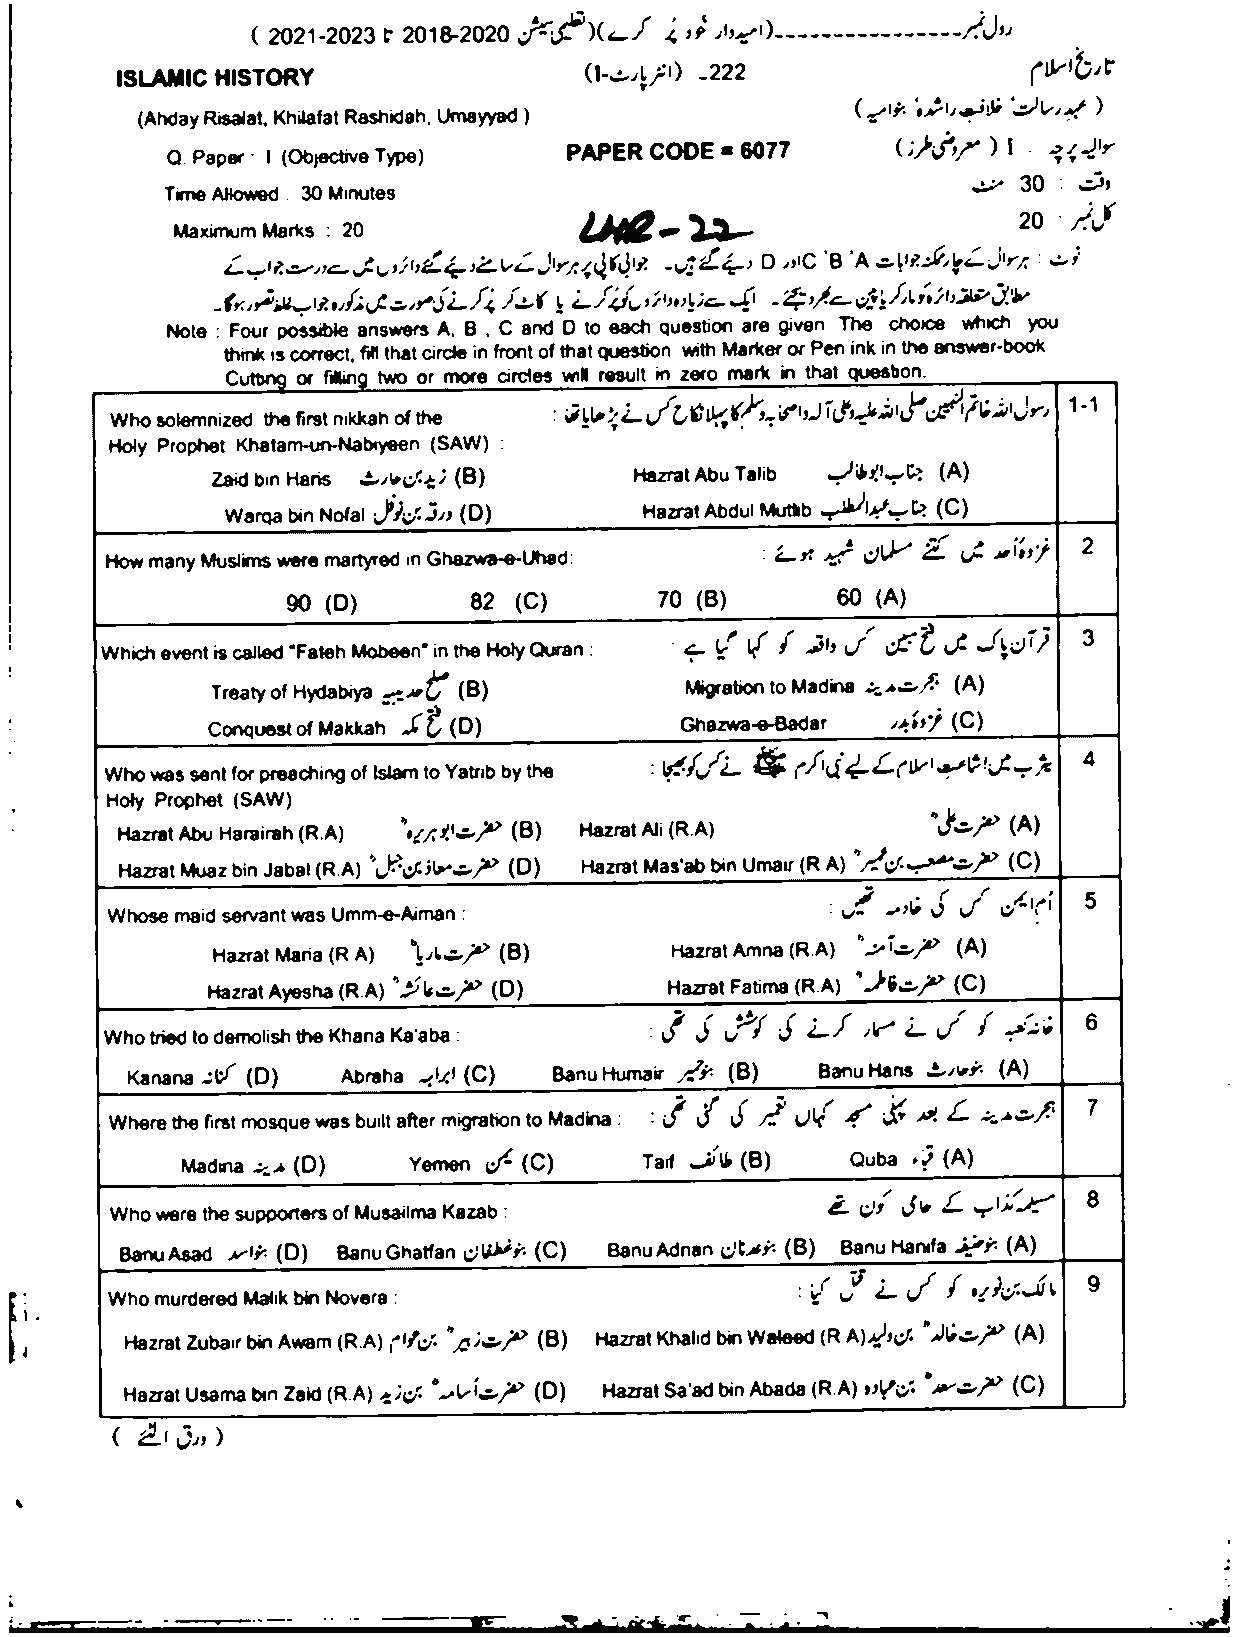 رول نمبر-----------------(امیدوار خود پُر کرے)(تعلیمی سیشن 2020-2018 تا 2023-2021 )
ISLAMIC HISTORY 222- (انٹر پارٹ-I) تاریخ اسلام
(Ahday Risalat, Khilafat Rashidah, Umayyad ) (عہد رسالت، خلافت راشدہ، بنو امیہ )
Q. Paper : I (Objective Type) PAPER CODE = 6077 سوالیہ پرچہ : I (معروضی طرز)
Time Allowed : 30 Minutes وقت : 30 منٹ
Maximum Marks : 20 LHR-22 کل نمبر : 20
نوٹ : ہر سوال کے چار ممکنہ جوابات A، B، C اور D دیئے گئے ہیں۔ جوابی کاپی پر ہر سوال کے سامنے دیئے گئے دائروں میں سے درست جواب کے
مطابق متعلقہ دائرہ کو مارکر یا پین سے بھر دیجئے۔ ایک سے زیادہ دائروں کو پُر کرنے یا کاٹ کر پُر کرنے کی صورت میں مذکورہ جواب غلط تصور ہوگا۔
Note : Four possible answers A, B , C and D to each question are given The choice which you
think is correct, fill that circle in front of that question with Marker or Pen ink in the answer-book
Cutting or filling two or more circles will result in zero mark in that question.
1-1 رسول اللہ خاتم النبیین صلی اللہ علیہ وعلی آلہ واصحابہ وسلم کا پہلا نکاح کس نے پڑھایا تھا :
Who solemnized the first nikkah of the
Holy Prophet Khatam-un-Nabiyeen (SAW) :
(A) جناب ابو طالب Hazrat Abu Talib (B) زید بن حارث Zaid bin Haris
(C) جناب عبدالمطلب Hazrat Abdul Muttlib (D) ورقہ بن نوفل Warqa bin Nofal
2 غزوہ اُحد میں کتنے مسلمان شہید ہوئے :
How many Muslims were martyred in Ghazwa-e-Uhad:
(A) 60 (B) 70 (C) 82 (D) 90
3 قرآن پاک میں فتح مبین کس واقعہ کو کہا گیا ہے
Which event is called "Fateh Mobeen" in the Holy Quran :
(A) ہجرت مدینہ Migration to Madina (B) صلح حدیبیہ Treaty of Hydabiya
(C) غزوہ بدر Ghazwa-e-Badar (D) فتح مکہ Conquest of Makkah
4 یثرب میں اشاعت اسلام کے لیے نبی اکرم ﷺ نے کس کو بھیجا :
Who was sent for preaching of Islam to Yatrib by the
Holy Prophet (SAW)
(A) حضرت علیؓ Hazrat Ali (R.A) (B) حضرت ابو ہریرہؓ Hazrat Abu Harairah (R.A)
(C) حضرت مصعب بن عمیرؓ Hazrat Mas'ab bin Umair (R A) (D) حضرت معاذ بن جبلؓ Hazrat Muaz bin Jabal (R.A)
5 اُم ایمن کس کی خادمہ تھیں :
Whose maid servant was Umm-e-Aiman :
(A) حضرت آمنہؓ Hazrat Amna (R.A) (B) حضرت ماریہؓ Hazrat Maria (R A)
(C) حضرت فاطمہؓ Hazrat Fatima (R.A) (D) حضرت عائشہؓ Hazrat Ayesha (R.A)
6 خانہ کعبہ کو کس نے مسمار کرنے کی کوشش کی تھی :
Who tried to demolish the Khana Ka'aba :
(A) بنو حارث Banu Haris (B) بنو حمیر Banu Humair (C) ابرہہ Abraha (D) کنانہ Kanana
7 ہجرت مدینہ کے بعد پہلی مسجد کہاں تعمیر کی گئی تھی :
Where the first mosque was built after migration to Madina :
(A) قباء Quba (B) طائف Taif (C) یمن Yemen (D) مدینہ Madina
8 مسیلمہ کذاب کے حامی کون تھے
Who were the supporters of Musailma Kazab :
(A) بنو حنیفہ Banu Hanifa (B) بنو عدنان Banu Adnan (C) بنو غطفان Banu Ghatfan (D) بنو اسد Banu Asad
9 مالک بن نویرہ کو کس نے قتل کیا :
Who murdered Malik bin Novera :
(A) حضرت خالدؓ بن ولید Hazrat Khalid bin Waleed (R A) (B) حضرت زبیرؓ بن عوام Hazrat Zubair bin Awam (R.A)
(C) حضرت سعدؓ بن عبادہ Hazrat Sa'ad bin Abada (R.A) (D) حضرت اُسامہؓ بن زید Hazrat Usama bin Zaid (R.A)
( ورق الٹئے )